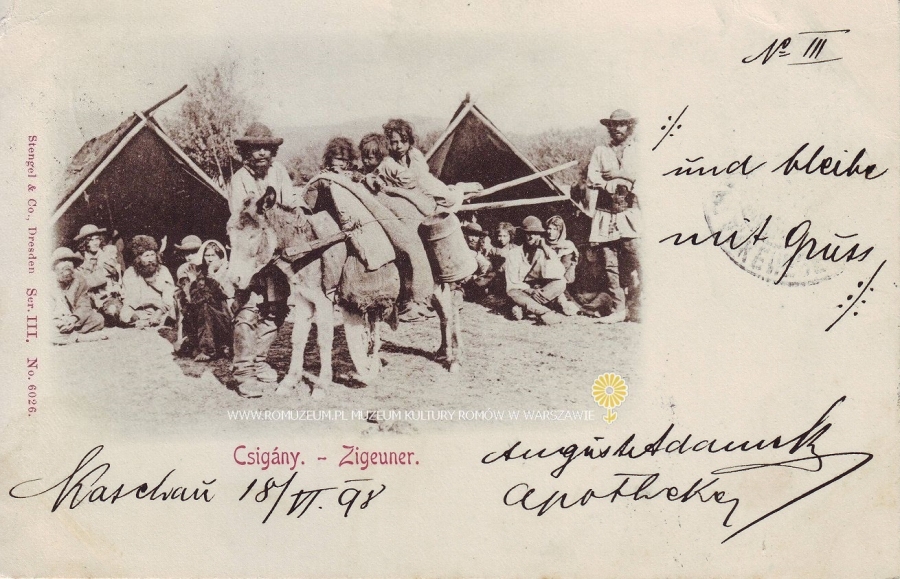 Nº III
Stengel & Co., Dresden Ser. III. No. 6026.
·/·
und bleibe
mit Gruss
WWW.ROMUZEUM.PL MUZEUM KULTURY ROMÓW W WARSZAWIE
Csigány. - Zigeuner.
Kaschau 18/VI. 98
August Adamek
Apotheker